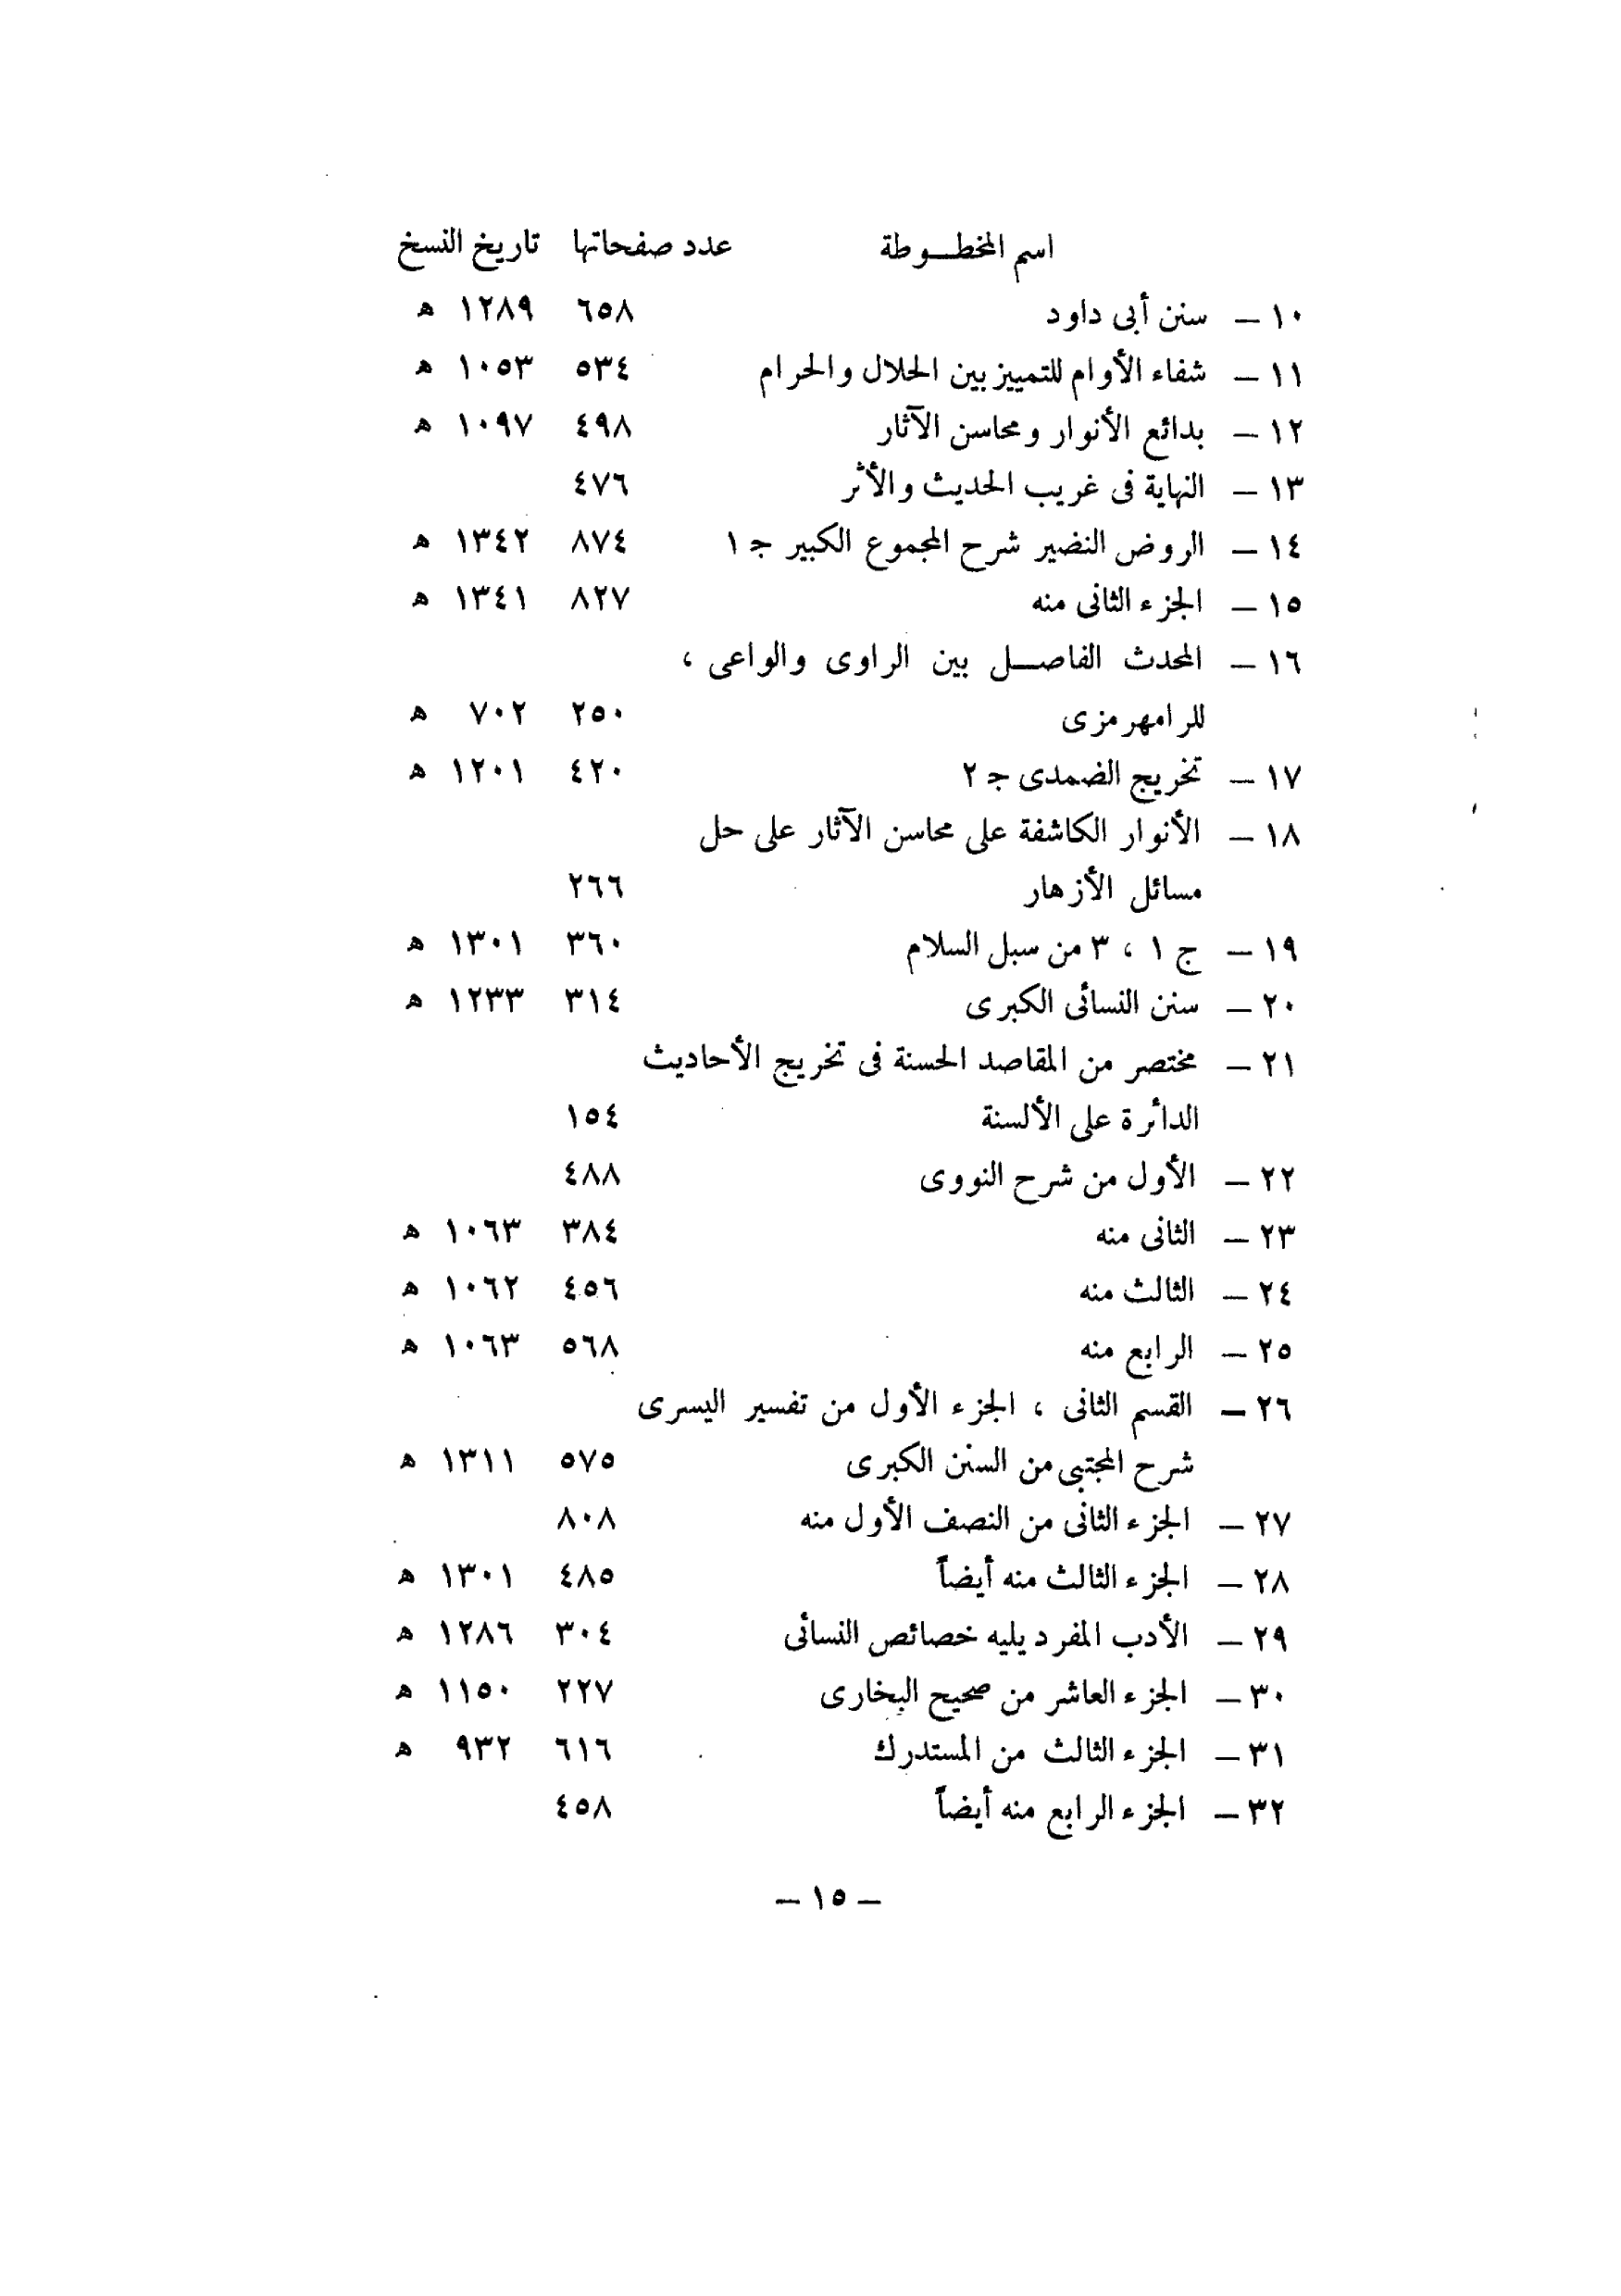 اسم المخطـــوطة عدد صفحاتها تاريخ النسخ
١٠ — سنن أبى داود ٦٥٨ ١٢٨٩ ه
١١ — شفاء الأوام للتمييز بين الحلال والحرام ٥٣٤ ١٠٥٣ ه
١٢ — بدائع الأنوار ومحاسن الآثار ٤٩٨ ١٠٩٧ ه
١٣ — النهاية فى غريب الحديث والأثر ٤٧٦
١٤ — الروض النضير شرح المجموع الكبير ج ١ ٨٧٤ ١٣٤٢ ه
١٥ — الجزء الثانى منه ٨٢٧ ١٣٤١ ه
١٦ — المحدث الفاصــل بين الراوى والواعى ،
للرامهرمزى ٢٥٠ ٧٠٢ ه
١٧ — تخريج الضمدى ج ٢ ٤٢٠ ١٢٠١ ه
١٨ — الأنوار الكاشفة على محاسن الآثار على حل
مسائل الأزهار ٢٦٦
١٩ — ج ١ ، ٣ من سبل السلام ٣٦٠ ١٣٠١ ه
٢٠ — سنن النسائى الكبرى ٣١٤ ١٢٣٣ ه
٢١ — مختصر من المقاصد الحسنة فى تخريج الأحاديث
الدائرة على الألسنة ١٥٤
٢٢ — الأول من شرح النووى ٤٨٨
٢٣ — الثانى منه ٣٨٤ ١٠٦٣ ه
٢٤ — الثالث منه ٤٥٦ ١٠٦٢ ه
٢٥ — الرابع منه ٥٦٨ ١٠٦٣ ه
٢٦ — القسم الثانى ، الجزء الأول من تفسير اليسرى
شرح المجتبى من السنن الكبرى ٥٧٥ ١٣١١ ه
٢٧ — الجزء الثانى من النصف الأول منه ٨٠٨
٢٨ — الجزء الثالث منه أيضاً ٤٨٥ ١٣٠١ ه
٢٩ — الأدب المفرد يليه خصائص النسائى ٣٠٤ ١٢٨٦ ه
٣٠ — الجزء العاشر من صحيح البخارى ٢٢٧ ١١٥٠ ه
٣١ — الجزء الثالث من المستدرك ٦١٦ ٩٣٢ ه
٣٢ — الجزء الرابع منه أيضاً ٤٥٨
— ١٥ —